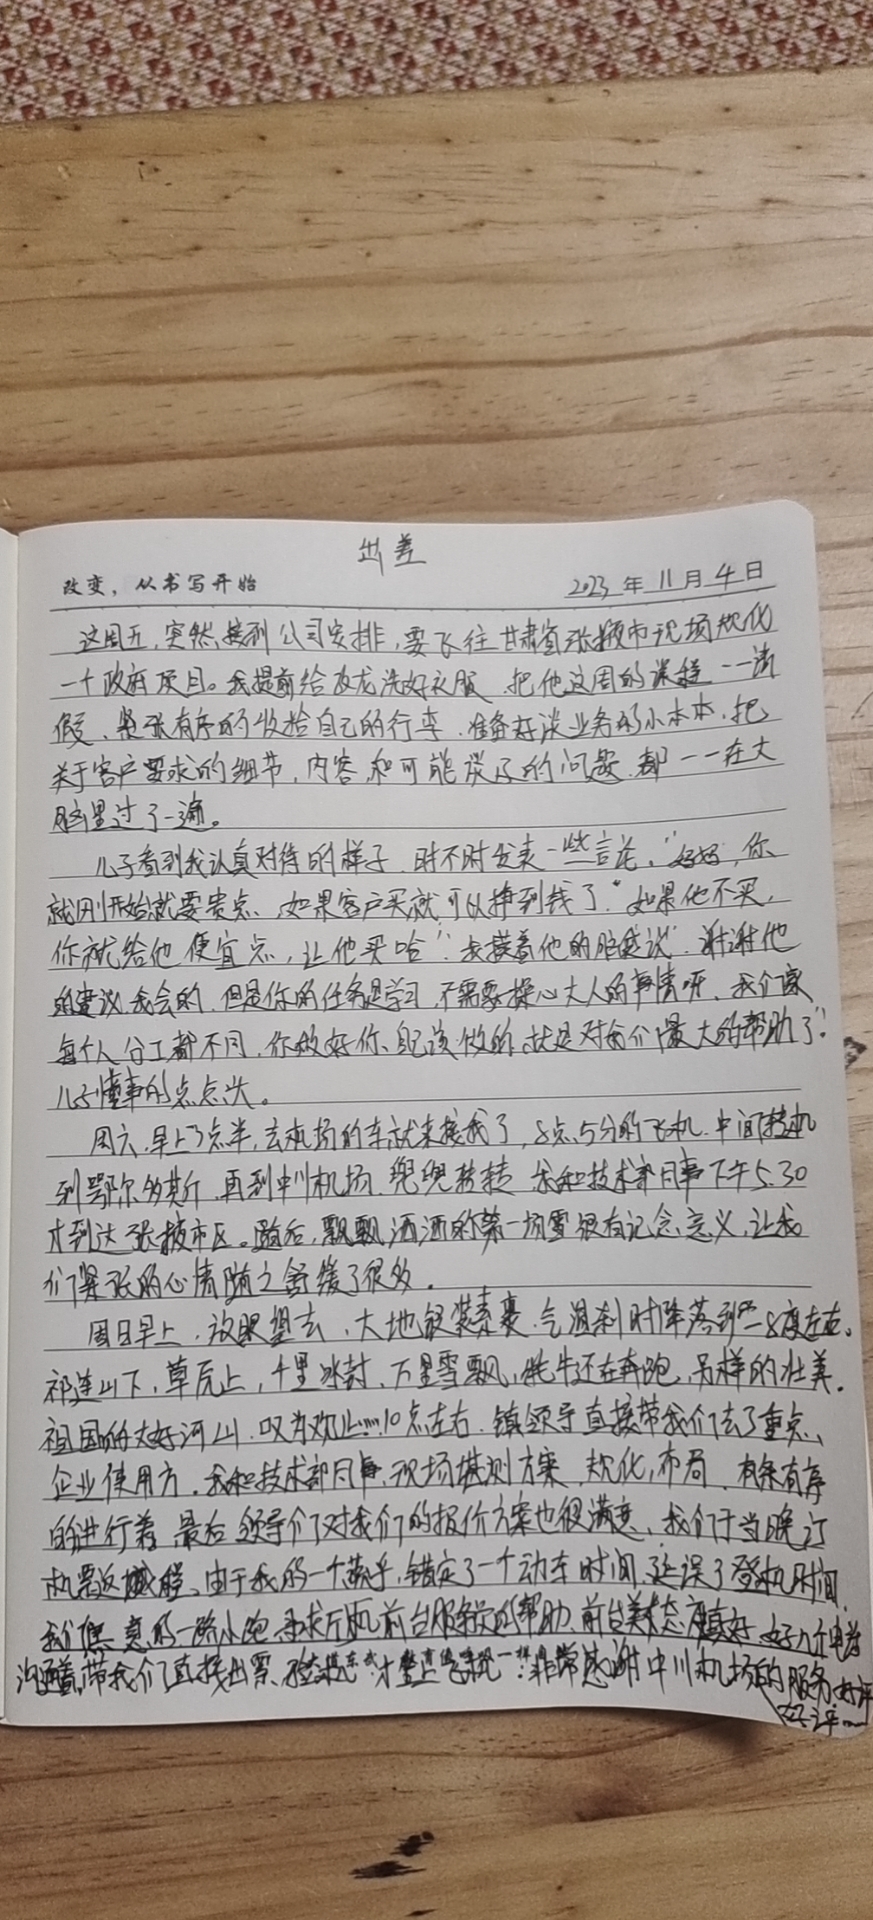 出差
改变，从书写开始 2023 年 11 月 4 日
这周五，突然接到公司安排，要飞往甘肃省张掖市现场规化
一个政府项目。我提前给友龙洗好衣服，把他这周的课程一一请
假，紧张有序的收拾自己的行李，准备好谈业务的小本本，把
关于客户要求的细节，内容和可能谈及的问题，都一一在大
脑里过了一遍。
儿子看到我认真对待的样子，时不时发表一些言论，“妈妈，你
就刚开始就要贵点、如果客户买就可以挣到钱了。”如果他不买，
你就给他便宜点，让他买哈”我摸着他的脑袋说“谢谢他
的建议，我会的，但是你的任务是学习，不需要操心大人的事情呀，我们家
每个人分工都不同，你做好你自己该做的，就是对我们最大的帮助了”
儿子懂事的点点头。
周六，早上3点半，去机场的车就来接我了，8点5分的飞机，中间转机
到鄂尔多斯，再到中川机场，兜兜转转，我和技术部同事下午5.30
才到达张掖市区。随后，飘飘洒洒的第一场雪很有记念意义，让我
们紧张的心情随之舒缓了很多。
周日早上，放眼望去，大地银装素裹，气温刹时降落到零下8度左右。
祁连山下，草原上，千里冰封，万里雪飘，牦牛还在奔跑，另样的壮美，
祖国的大好河山，叹为观止……10点左右，镇领导直接带我们去了重点
企业使用方，我和技术部同事，现场堪测方案，规化，布局，有条有序
的进行着，最后领导们对我们的报价方案也很满意，我们于当晚订
机票返 由于我的一个疏乎，错定了一个动车时间，延误了登机时间，
我们俩真的一路小跑，寻求厅机前台服务员的帮助，前台美女态度真好，好几个电话
沟通着，带我们直接出票、 才登上飞机 非常感谢中川机场的服务，好评
好评……